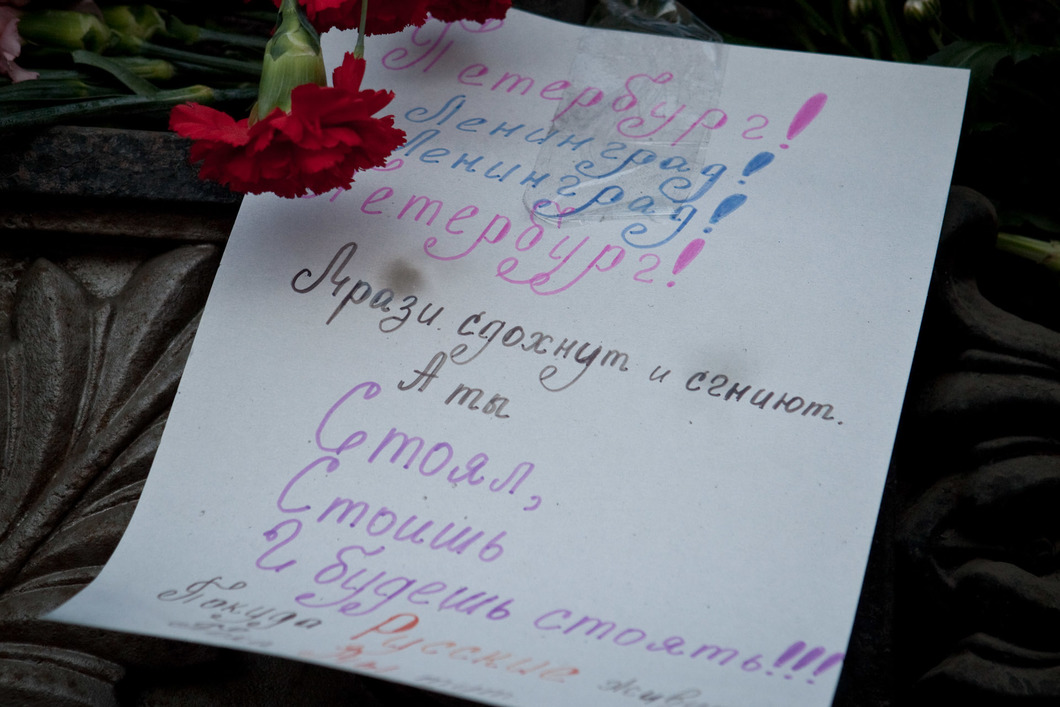 Петербург!
Ленинград!
Ленинград!
Петербург!
Мрази сдохнут и сгниют.
А ты
Стоял,
Стоишь
И будешь стоять!!!
Покуда Русские